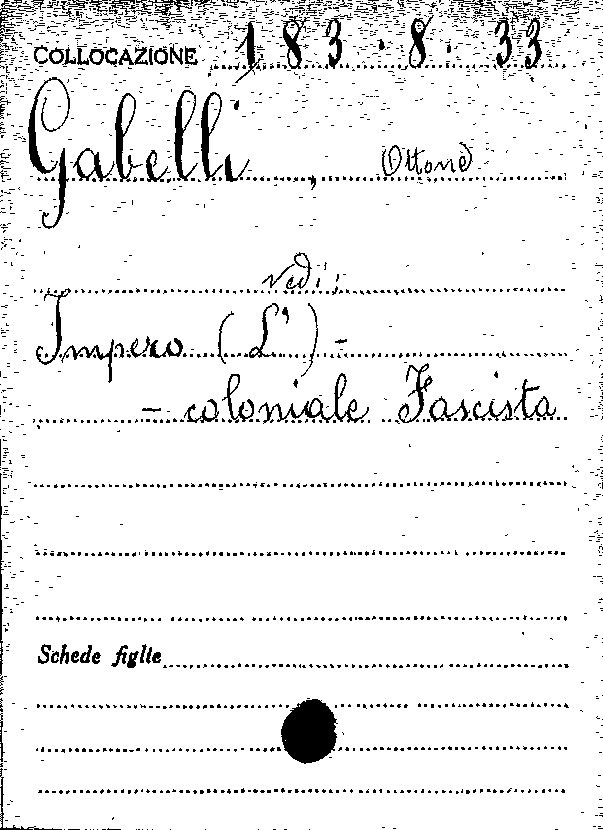 COLLOCAZIONE 183.8.33
Gabelli, Ottone
vedi:
Impero (L') -
- coloniale Fascista
Schede figlie